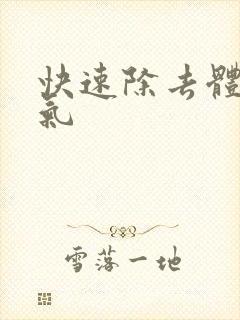 快速除去體
氣
雪落一地